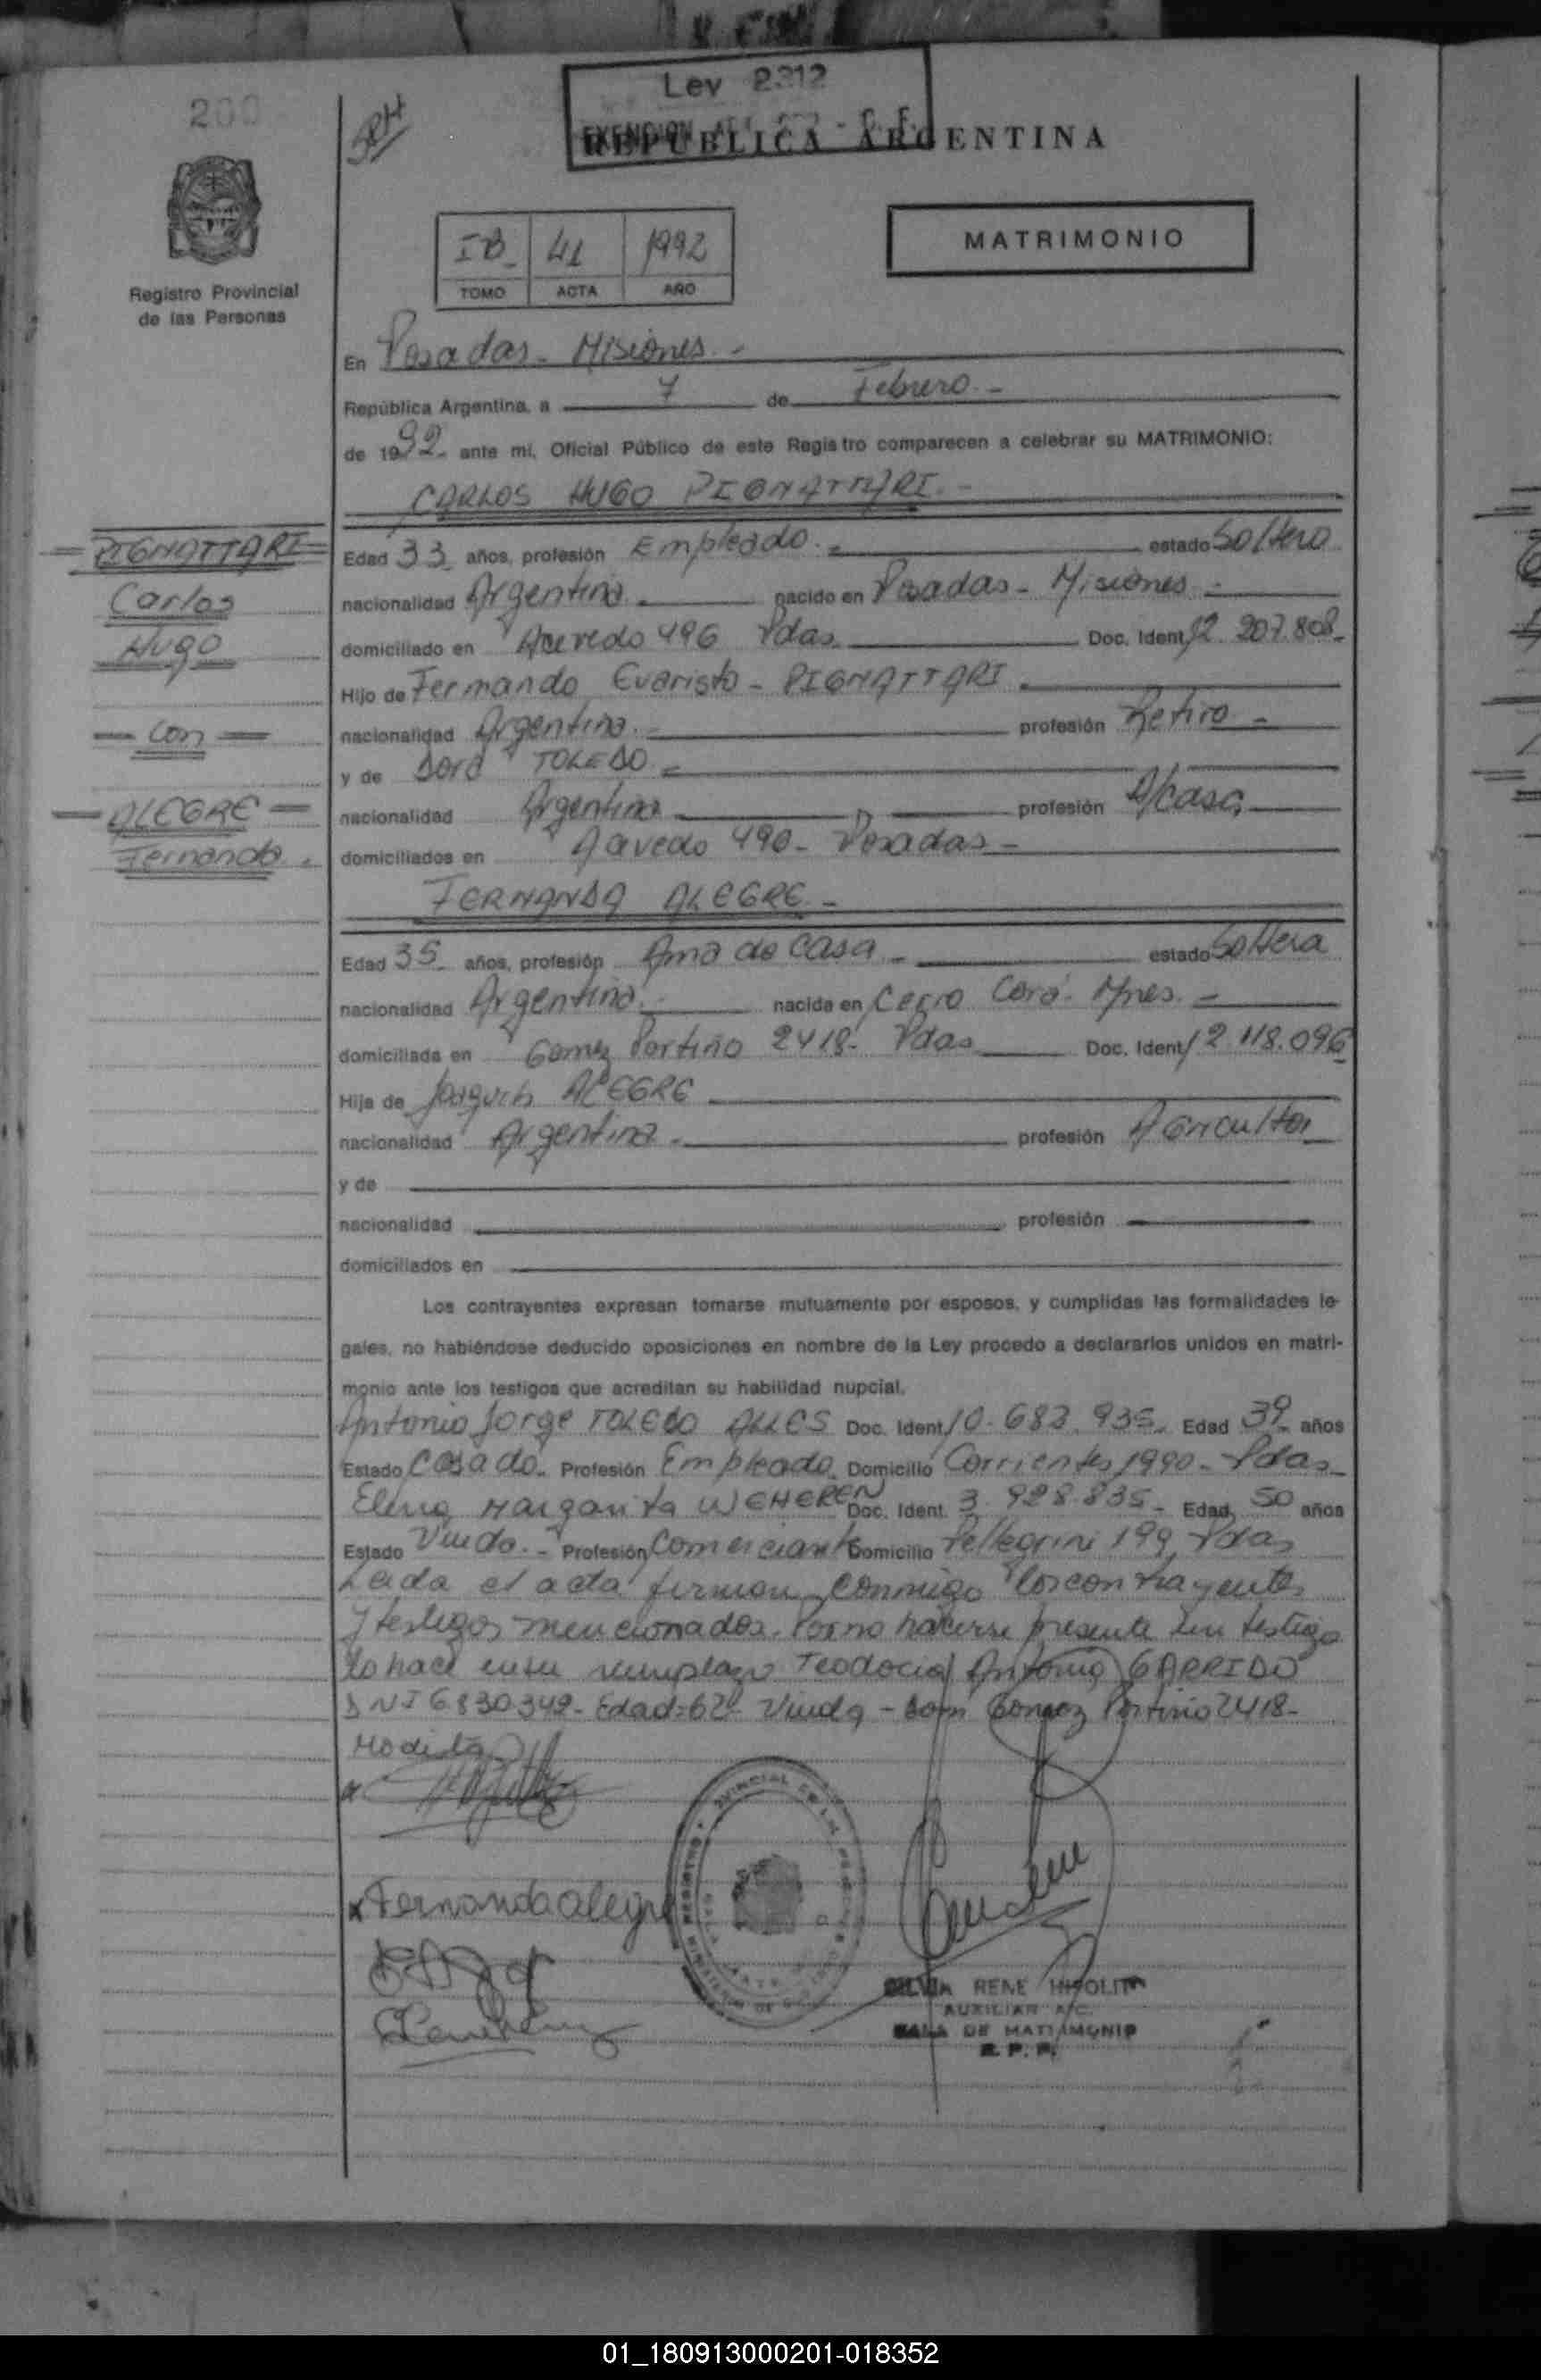 200
Ley 2312
REPUBLICA ARGENTINA
MATRIMONIO
IB 41 1992
TOMO ACTA AÑO
Registro Provincial
de las Personas
En Posadas - Misiones -
República Argentina, a 7 de Febrero -
de 1992 - ante mí, Oficial Público de este Registro comparecen a celebrar su MATRIMONIO:
CARLOS HUGO PIGNATTARI -
PIGNATTARI
Carlos
Hugo
- con -
- ALEGRE -
Fernanda
Edad 33 años, profesión Empleado. - estado Soltero
nacionalidad Argentina nacido en Posadas - Misiones -
domiciliado en Acevedo 496 Pdas. Doc. Ident. 12.207.808
Hijo de Fernando Evaristo - PIGNATTARI
nacionalidad Argentina. profesión Retiro -
y de Dora TOLEDO -
nacionalidad Argentina profesión A/casa
domiciliados en Acevedo 490 - Posadas -
FERNANDA ALEGRE -
Edad 35 años, profesión Ama de Casa - estado Soltera
nacionalidad Argentina - nacida en Cerro Corá - Mnes. -
domiciliada en Gomez Portiño 2418 - Pdas Doc. Ident. 12 118.096
Hija de Joaquin ALEGRE
nacionalidad Argentina. profesión Agricultor
y de
nacionalidad profesión
domiciliados en
Los contrayentes expresan tomarse mutuamente por esposos, y cumplidas las formalidades le-
gales, no habiéndose deducido oposiciones en nombre de la Ley procedo a declararlos unidos en matri-
monio ante los testigos que acreditan su habilidad nupcial.
Antonio Jorge TOLEDO ALLES Doc. Ident. 10.683.935 Edad 39 años
Estado Casado. Profesión Empleado Domicilio Corrientes 1990 - Pdas
Elena Margarita WEHEREN Doc. Ident. 3.928.835 - Edad 50 años
Estado Viuda. - Profesión Comerciante Domicilio Pellegrini 199 Pdas
Leida el acta firman conmigo los contrayentes
y testigos mencionados. Por no hacerse presente un testigo
lo hace en su remplazo Teodocia Antonia GARRIDO
DNI 6.830.349 - Edad: 62 - Viuda - Dom Gomez Portiño 2418 -
Modista
x Fernanda alegre
SILVIA RENE HIPOLITO
AUXILIAR A/C.
SALA DE MATRIMONIO
R. P. P.
01_180913000201-018352